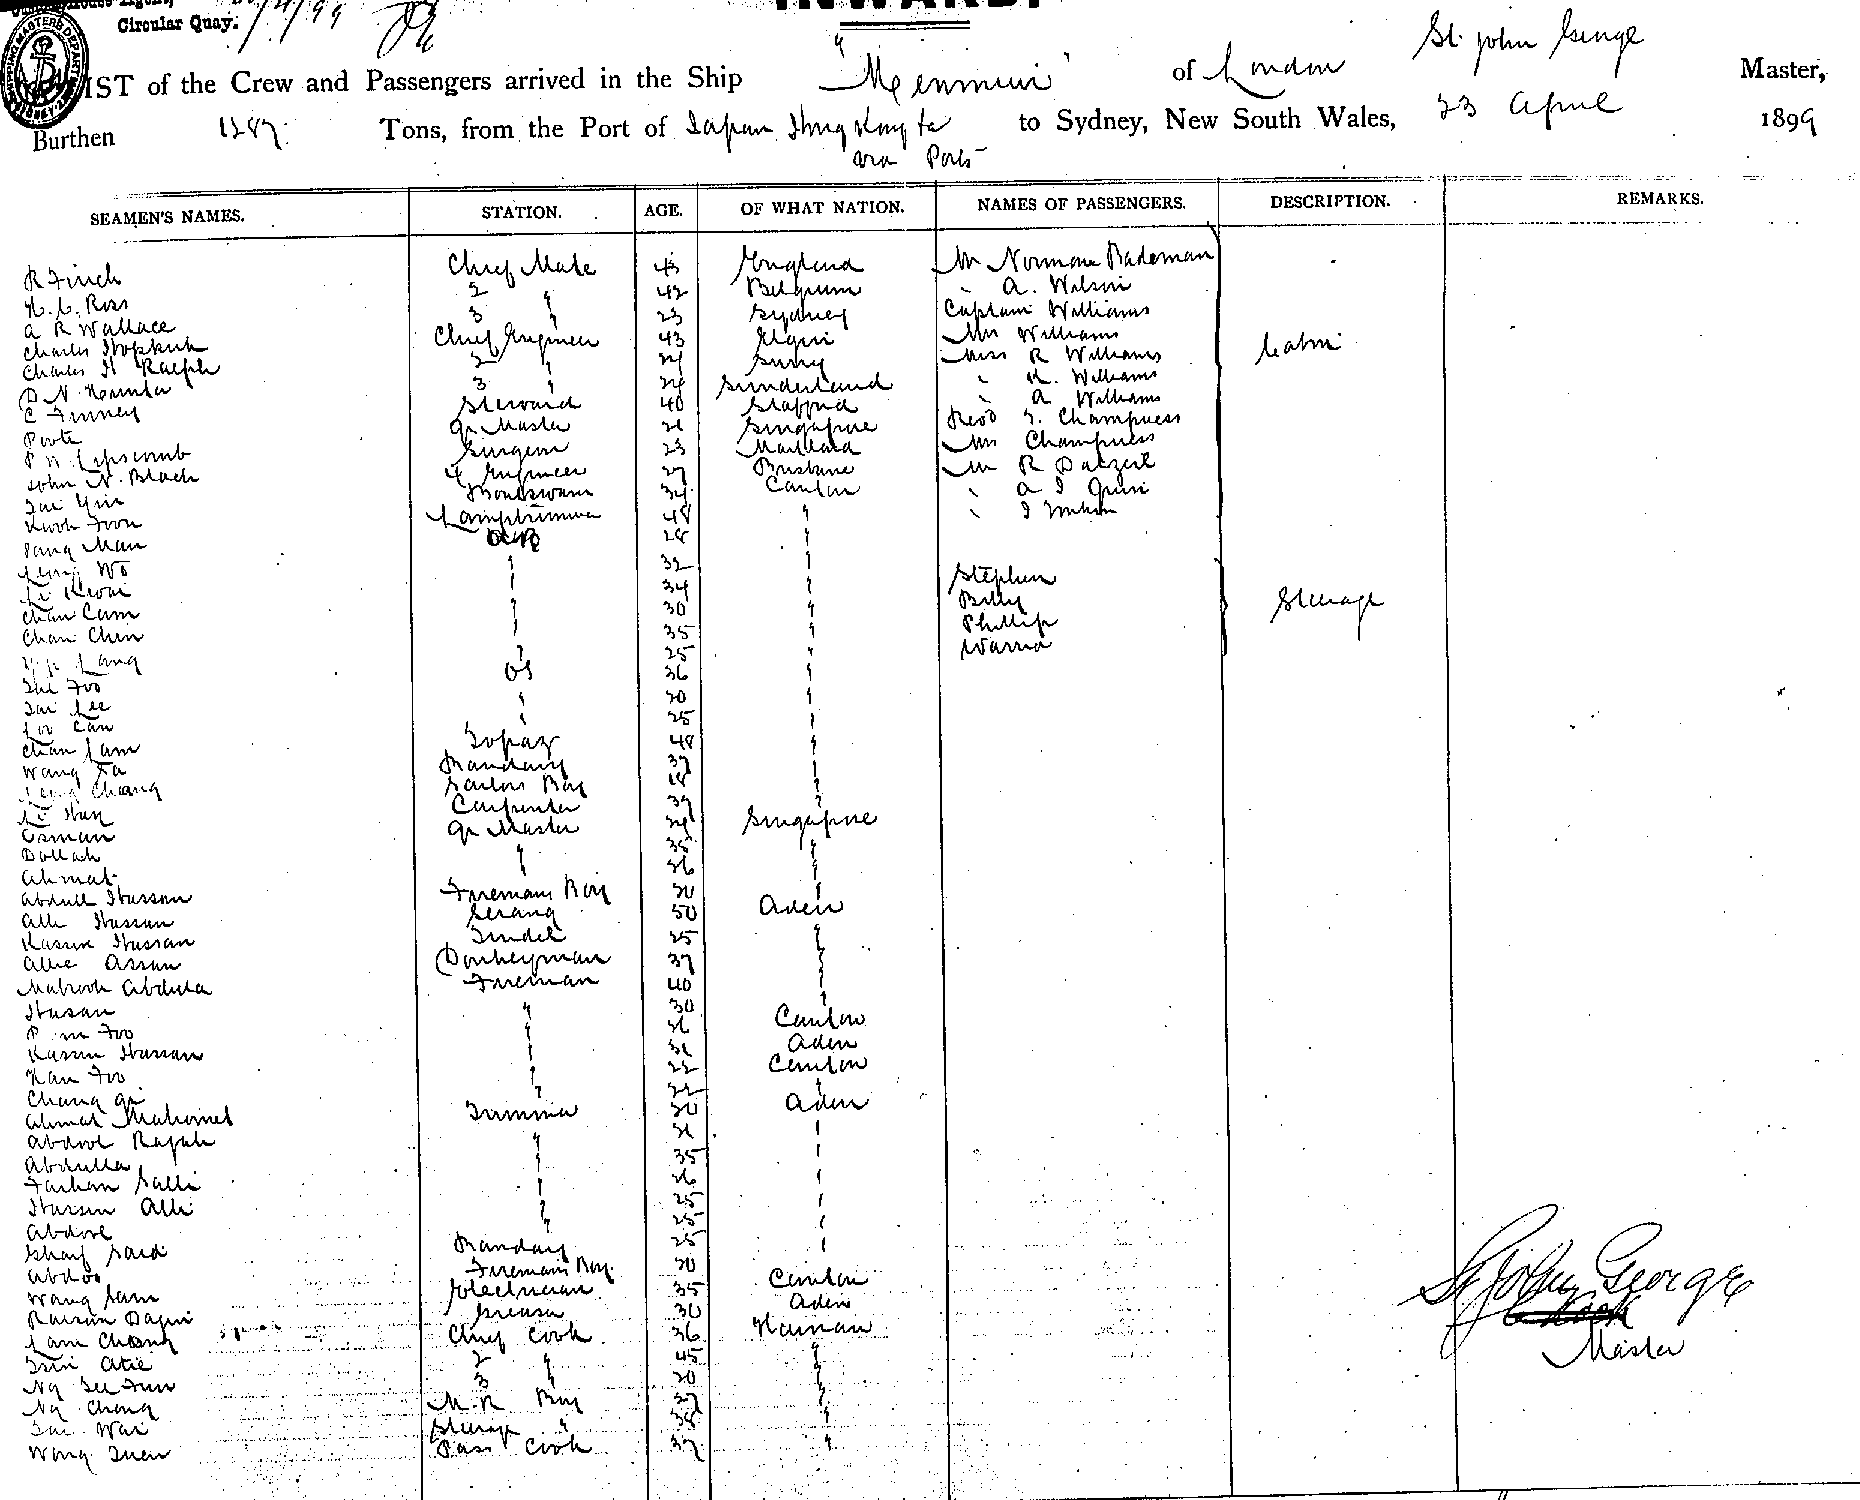 INWARD.
Circular Quay.
LIST of the Crew and Passengers arrived in the Ship "Menmuir" of London St. John George Master,
Burthen 1287 Tons, from the Port of Japan Hong Kong &c to Sydney, New South Wales, 23 April 1899
via Ports
SEAMEN'S NAMES. STATION. AGE. OF WHAT NATION. NAMES OF PASSENGERS. DESCRIPTION. REMARKS.
R Finch Chief Mate 43 England Mr Norman Bademan
H. C. Ross 2 " 42 Belgium " A. Wilson
A R Wallace 3 " 23 Sydney Captain Williams
Charles Hopkirk Chief Engineer 43 Elgin Mrs Williams
Charles H Ralph 2 " 24 Surry Miss R Williams Cabin
D N Hunter 3 " 24 Sunderland " H. Williams
C Finney Steward 40 Stafford " A Williams
Poote Qr Master 26 Singapore Revd Champness
P N Lipscomb Surgeon 23 Maitland Mrs Champness
John N. Black 4 Engineer 27 Brisbane Mr R Dalzeil
Tai Yin Boatswain 34 Canton " A
Kwok Foon Lamptrimmer 48 "
Pang Man AB 28 "
Leong Wo " 32 " Stephen
Li Kwai " 34 " Billy
Chan Cum " 30 " Phillip Steerage
Chan Chin " 35 " Warria
Yip Lang " 25 "
Tai Foo OS 36 "
Tai Lee " 20 "
Loo Can " 25 "
Chan Lam Topaz 48 "
Wang Fa Mandary 37 "
Leong Chang Sailors Boy 18 "
Li Hun Carpenter 39 "
Osman Qr Master 24 Singapore
Dollah " 35 "
Ahmat " 26 "
Abdull Hassan Firemans Boy 20 "
Alli Hassan Serang 50 Aden
Kasim Hassan Tindel 25 "
Allie Assan Donkeyman 37 "
Mabrook Abdula Fireman 40 "
Hasan " 30 "
Foo " 26 Canton
Kassim Hassan " 31 Aden
Kan Foo " 22 Canton
Chang Qi " 22 "
Ahmat Mahomet Trimmer 30 Aden
Abdool Rajah " 31 "
Abdulla " 35 "
Farhan Salli " 26 "
Hassan Alli " 25 "
Abdool " 25 "
Said Mandary 25 "
Abdoo Firemans Boy 20 "
Wang Sam Electrician 35 Canton
Greaser 30 Aden
Lam Chong Chief Cook 36 Hainan
2 " 45 "
Ng 3 " 20 "
Ng Chong M.R Boy 37 "
Tai Wai Steerage " 38 "
Wong Pass Cook 37 "
St John George
Master